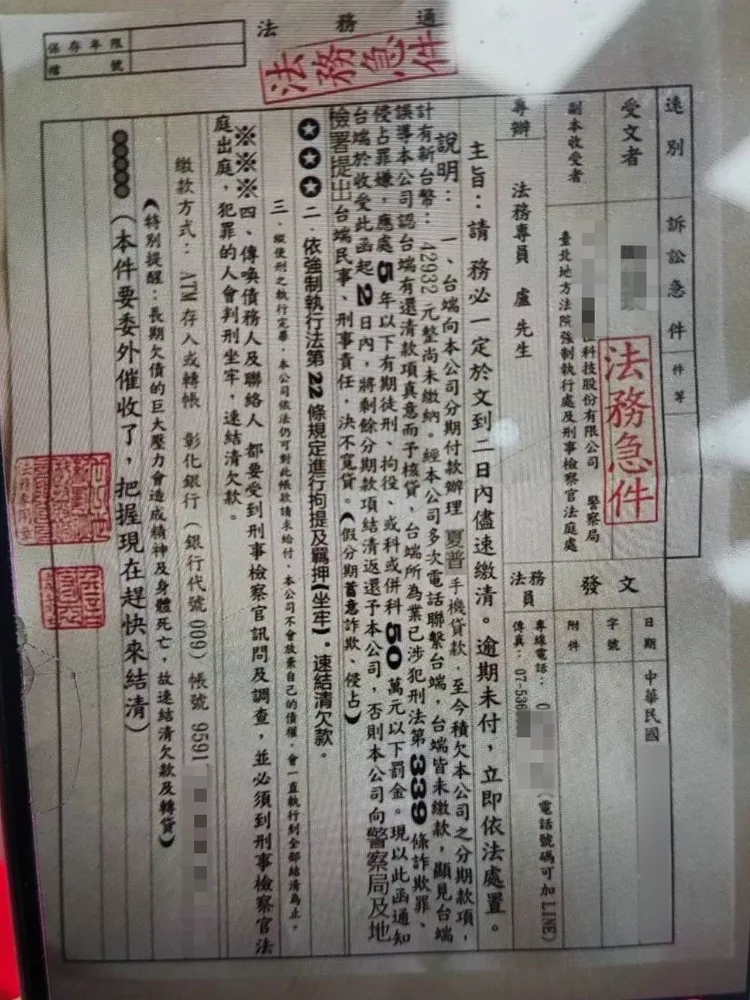 法務通
保存年限
檔號
法務急件
速別 訴訟急件 件等
受文者
法務急件
科技股份有限公司 警察局
副本收受者
臺北地方法院強制執行處及刑事檢察官法庭處
專辦 法務專員 盧先生
發文
日期 中華民國
字號
附件
法務員
專線電話:0 (電話號碼可加LINE)
傳真:07-536
主旨:請 務必一定於文到二日內儘速繳清。逾期未付,立即依法處置。
說明:一、台端向本公司分期付款辦理 夏普手機貸款,至今積欠本公司之分期款項,
計有新台幣:42932 元整尚未繳納。經本公司多次電話聯繫台端,台端皆未繳款,顯見台端
誤導本公司認台端有還清款項真意而予核貸,台端所為業已涉犯刑法第339條詐欺罪、
侵占罪嫌,應處5年以下有期徒刑、拘役、或科或併科50萬元以下罰金。現以此函通知
台端於收受此函起2日內,將剩餘分期款項結清返還予本公司,否則本公司向警察局及地
檢署提出台端民事、刑事責任,決不寬貸。(假分期蓄意詐欺、侵占)
✪✪✪二、依強制執行法第22條規定進行拘提及羈押(坐牢)。速結清欠款。
三、縱使刑之執行完畢,本公司依法仍可對此帳款請求給付,本公司不會放棄自己的債權,會一直執行到全部結清為止。
※※※四、傳喚債務人及聯絡人 都要受到刑事檢察官訊問及調查,並必須到刑事檢察官法
庭出庭,犯罪的人會判刑坐牢,速結清欠款。
繳款方式: ATM存入或轉帳 彰化銀行(銀行代號009)帳號 9591
(特別提醒:長期欠債的巨大壓力會造成精神及身體死亡,故速結清欠款及轉貸)
(本件要委外催收了,把握現在趕快來結清)